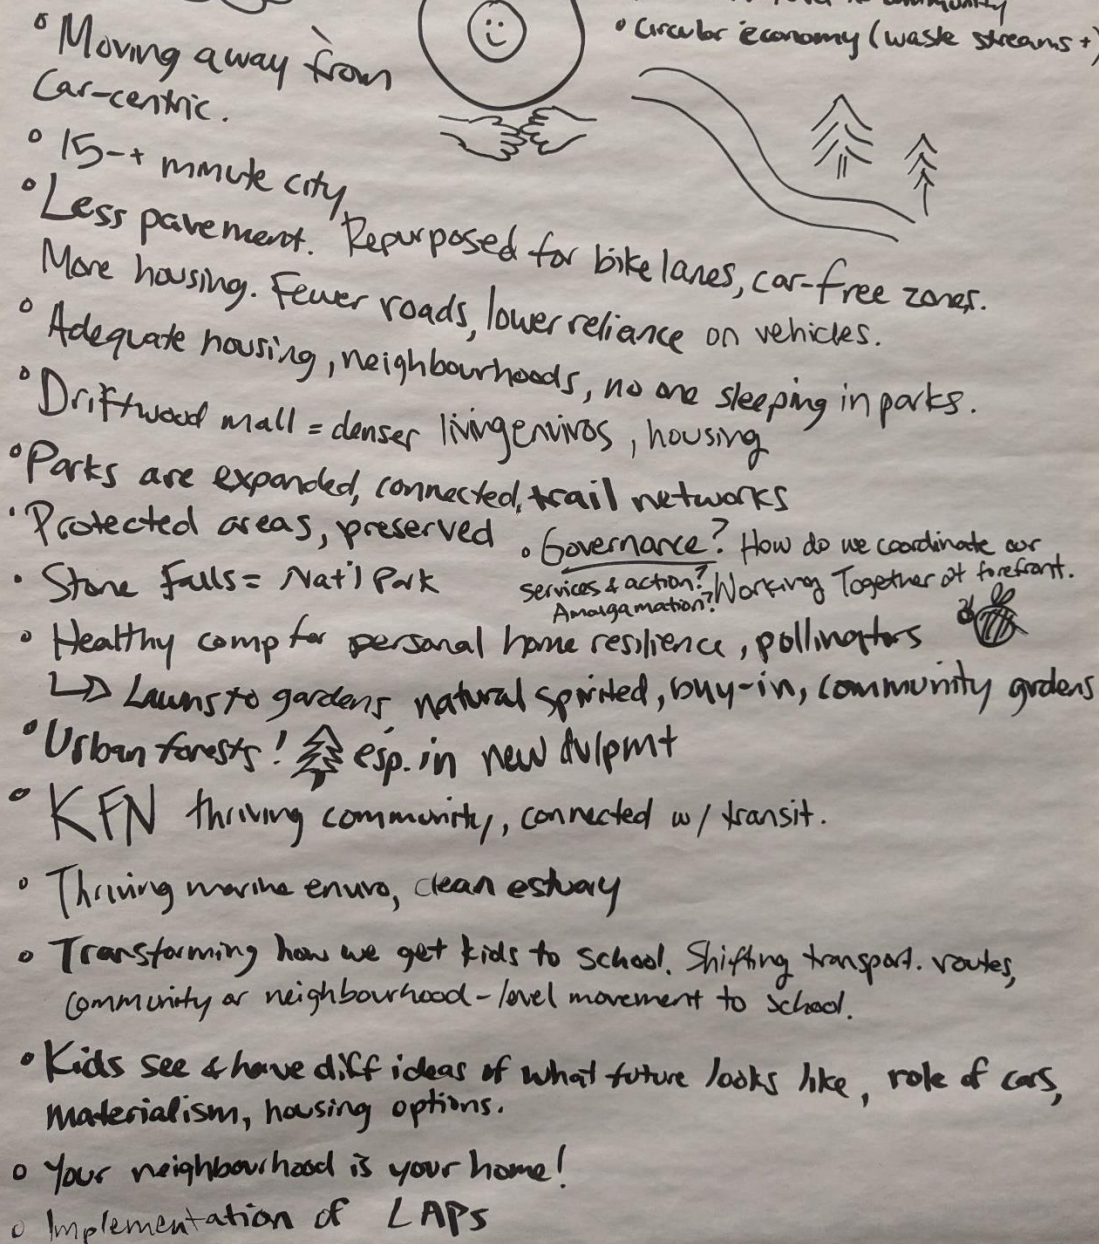 community
• Circular economy (waste streams +)
• Moving away from
Car-centric.
• 15-+ minute city
• Less pavement. Repurposed for bike lanes, car-free zones.
More housing. Fewer roads, lower reliance on vehicles.
• Adequate housing, neighbourhoods, no one sleeping in parks.
• Driftwood mall = denser living enviros, housing
• Parks are expanded, connected, trail networks
• Protected areas, preserved
• Stone Falls = Nat'l Park
• Governance? How do we coordinate our
services & action? Working Together at forefront.
Amalgamation?
• Healthy comp for personal home resilience, pollinators
↳ Lawns to gardens, natural spirited, buy-in, community grdens
• Urban forests! esp. in new dvlpmt
• KFN thriving community, connected w/ transit.
• Thriving marine enviro, clean estuary
• Transforming how we get kids to school. Shifting transport. routes,
community or neighbourhood-level movement to school.
• Kids see & have diff ideas of what future looks like, role of cars,
materialism, housing options.
• Your neighbourhood is your home!
• Implementation of LAPs